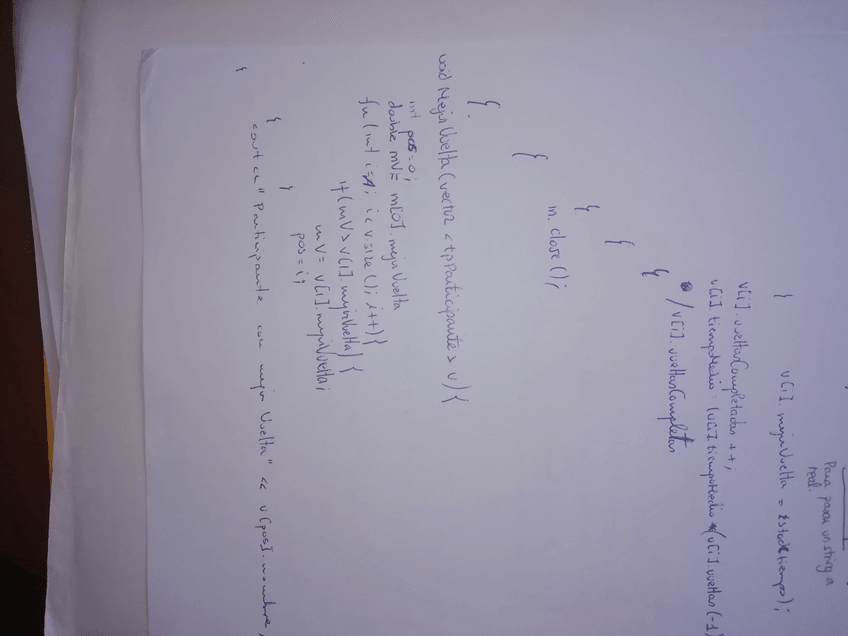 Para pasar un string a
real.
v[i].mejorVuelta = stod(tiempo);
}
v[i].vueltasCompletadas ++;
v[i].tiempoMedio = (v[i].tiempoMedio *(v[i].vueltas(-1)
/ v[i].vueltasCompletas
}
}
}
in.close();
}
}
void MejorVuelta (vector <tpParticipante> v) {
int pos=0;
double mV= m[0].mejorVuelta
for (int i=1; i<v.size(); i++) {
if (mV > v[i].mejorVuelta) {
mV = v[i].mejorVuelta;
pos = i;
}
}
cout << "Participante con mejor Vuelta" << v[pos].nombre,
}